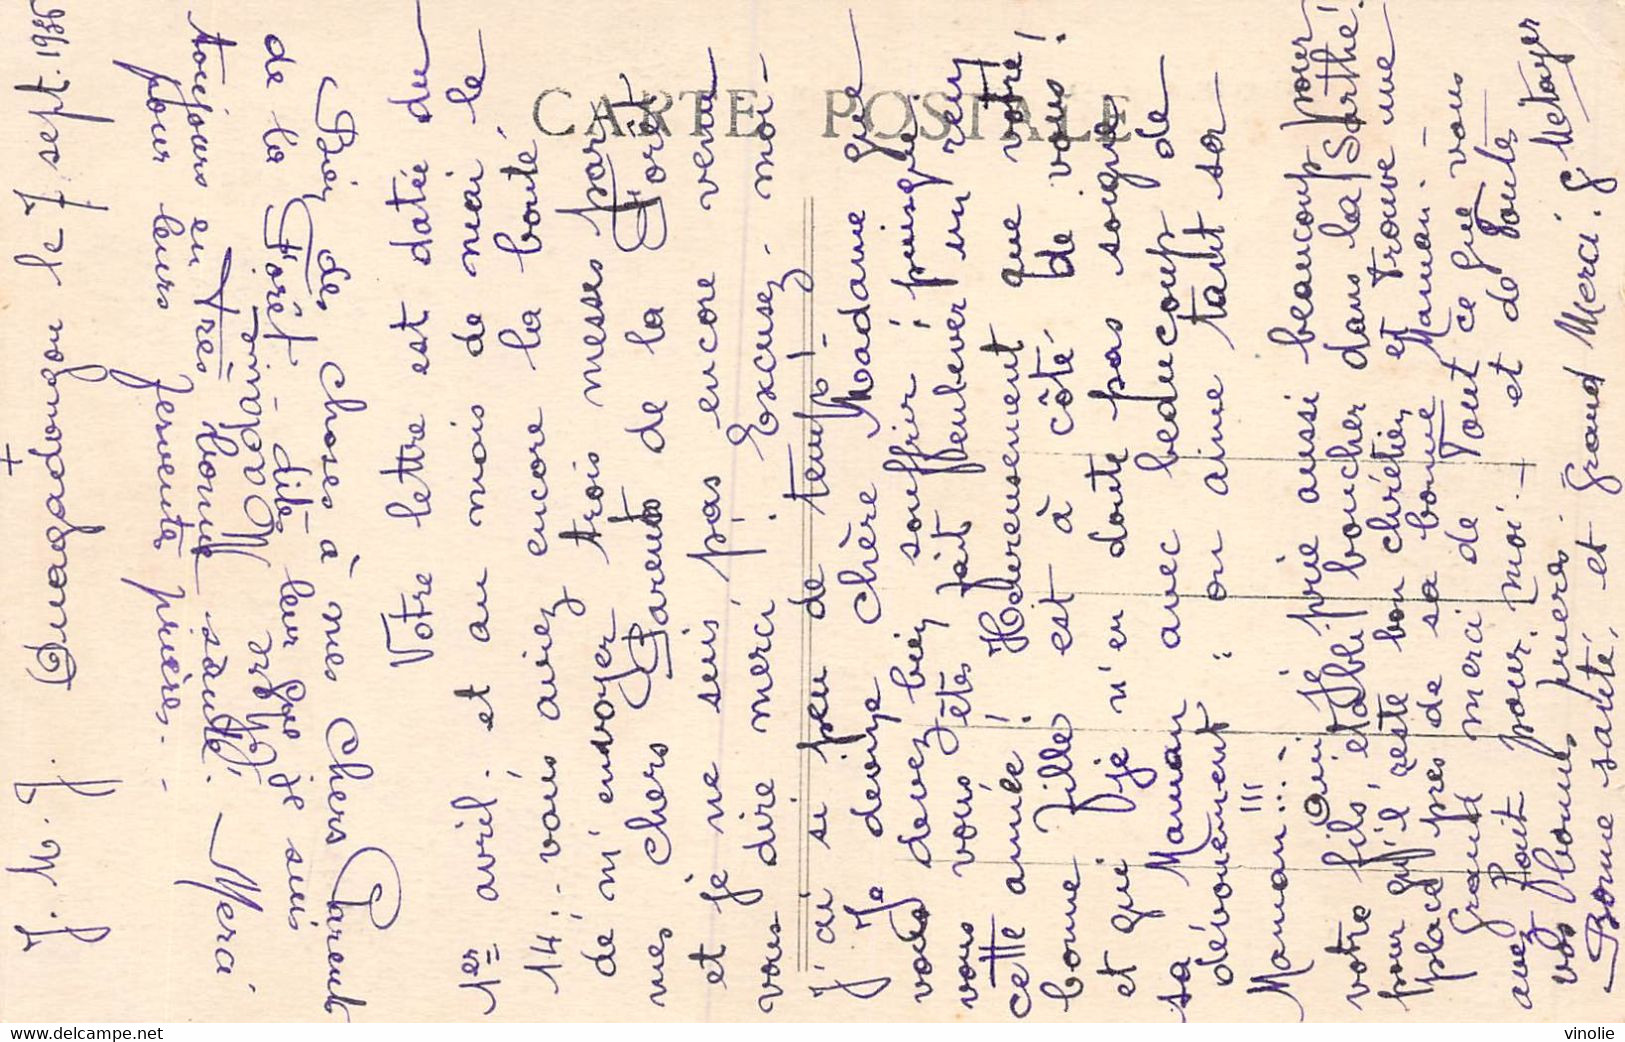 +
J. M. J. Ouagadougou le 7 sept. 1936
Bien des choses à mes Chers Parents
de la Forêt - dites leur que je suis
toujours en Très bonne santé. Merci
pour leurs ferventes prières. -
Madame
Votre lettre est datée du
1er avril, et au mois de mai, le
14, vous aviez encore la bonté
de m'envoyer trois messes par
mes chers Parents de la Forêt
et je ne suis pas encore venue
vous dire merci! Excusez-moi -
J'ai si peu de temps! -
Je devine chère Madame que
vous devez bien souffrir, puisque
vous vous êtes fait enlever un rein
cette année! Heureusement que votre
bonne fille est à côté de vous!
et qui je n'en doute pas soigne
sa Maman avec beaucoup de
dévouement: on aime tant sa
Maman!!! -
Oui je prie aussi beaucoup pour
votre fils, établi boucher dans la Sarthe!
pour qu'il reste bon chrétien et trouve une
place près de sa bonne Maman. -
Grand merci de Tout ce que vous
avez fait pour moi - et de Toutes
vos bonnes prières.
Bonne santé, et grand Merci. G Metayer
CARTE POSTALE
www.delcampe.net
vinolie